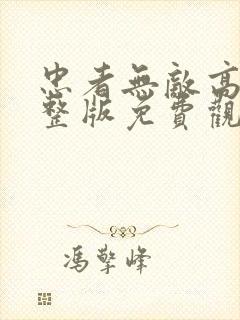 忠者無敵高
整版免費觀
馮擎峰